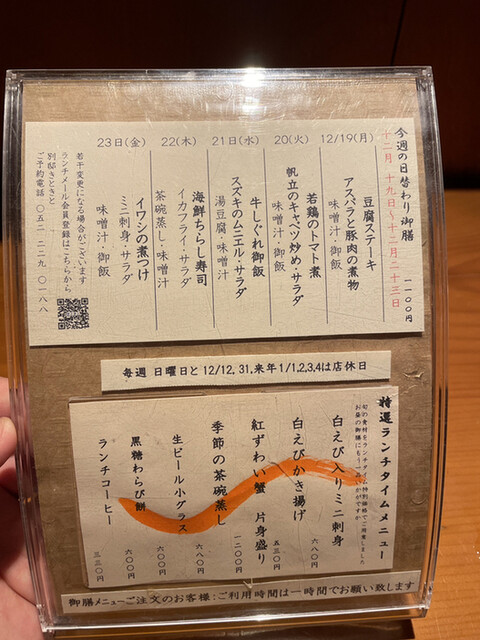 今週の日替わり御膳 一一〇〇円
十二月.十九日〜十二月.二十三日
12/19(月)
豆腐ステーキ
アスパラと豚肉の煮物
味噌汁・御飯
20(火)
若鶏のトマト煮
帆立のキャベツ炒め・サラダ
味噌汁・御飯
21(水)
牛しぐれ御飯
スズキのムニエル・サラダ
湯豆腐・味噌汁
22(木)
海鮮ちらし寿司
イカフライ・サラダ
茶碗蒸し・味噌汁
23日(金)
イワシの煮つけ
ミニ刺身・サラダ
味噌汁・御飯
若干変更になる場合がございます
ランチメール会員登録はこちらから
別邸きときと
ご予約電話 〇五二 二二九 〇一八八
毎週 日曜日と 12/12, 31,来年 1/1,2,3,4は店休日
特選ランチタイムメニュー
旬の食材をランチタイム特別価格でご用意しました
お昼の御膳にもう一品いかがですか
白えび入りミニ刺身 六八〇円
白えびかき揚げ 五三〇円
紅ずわい蟹 片身盛り 一二〇〇円
季節の茶碗蒸し 六八〇円
生ビール小グラス 六〇〇円
黒糖わらび餅 六〇〇円
ランチコーヒー 三三〇円
御膳メニューご注文のお客様:ご利用時間は一時間でお願い致します